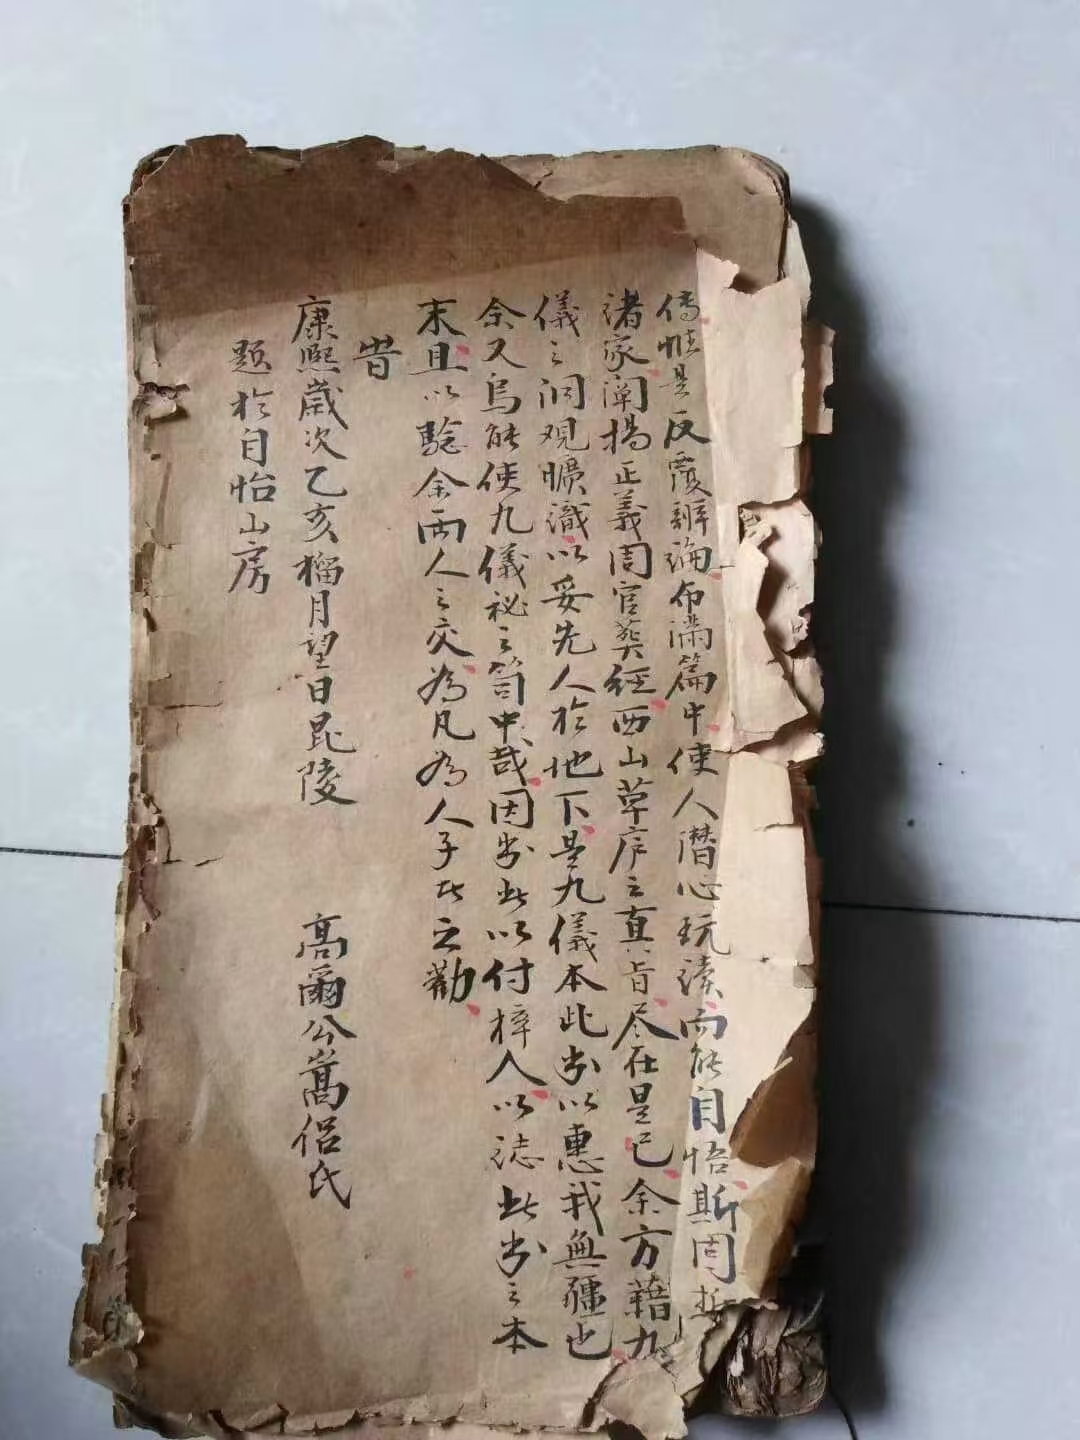 傳惟是反覆辨論布滿篇中使人潛心玩讀而能自悟斯固
諸家闡揚正義周官葬經西山草序之真旨尽在是已余方藉九
儀之洞观曠識以妥先人於地下是九儀本此书以惠我無疆也
余又烏能使九儀秘之笥中哉因书此以付梓人以誌此书之本
末且以驗余兩人之交為凡為人子者之勸
旹
康熙歲次乙亥榴月望日昆陵 高爾公嵩侶氏
題於自怡山房